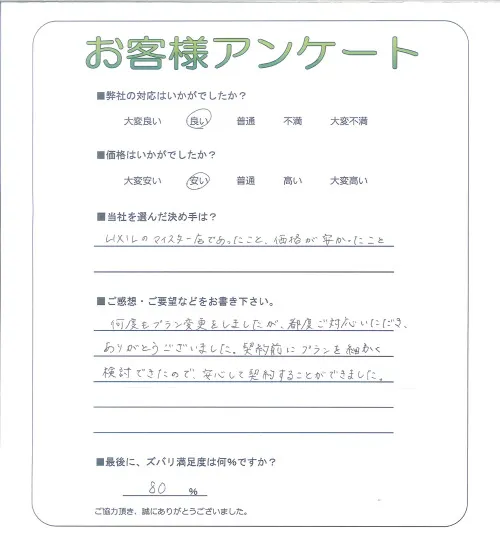 お客様アンケート
■弊社の対応はいかがでしたか？
大変良い 良い 普通 不満 大変不満
■価格はいかがでしたか？
大変安い 安い 普通 高い 大変高い
■当社を選んだ決め手は？
LIXILのマイスター店であったこと、価格が安かったこと
■ご感想・ご要望などをお書き下さい。
何度もプラン変更をしましたが、都度ご対応いただき、
ありがとうございました。契約前にプランを細かく
検討できたので、安心して契約することができました。
■最後に、ズバリ満足度は何％ですか？
80 ％
ご協力頂き、誠にありがとうございました。